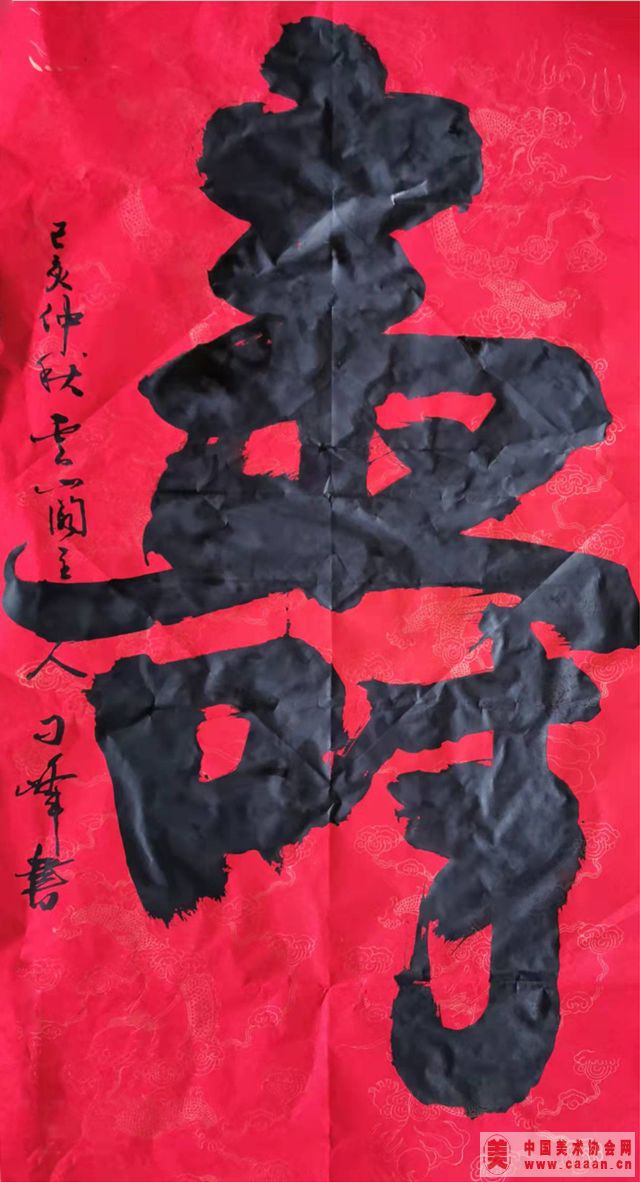 壽
己亥仲秋雲閣主人刁峰書
美 中国美术协会网
www.caaan.cn